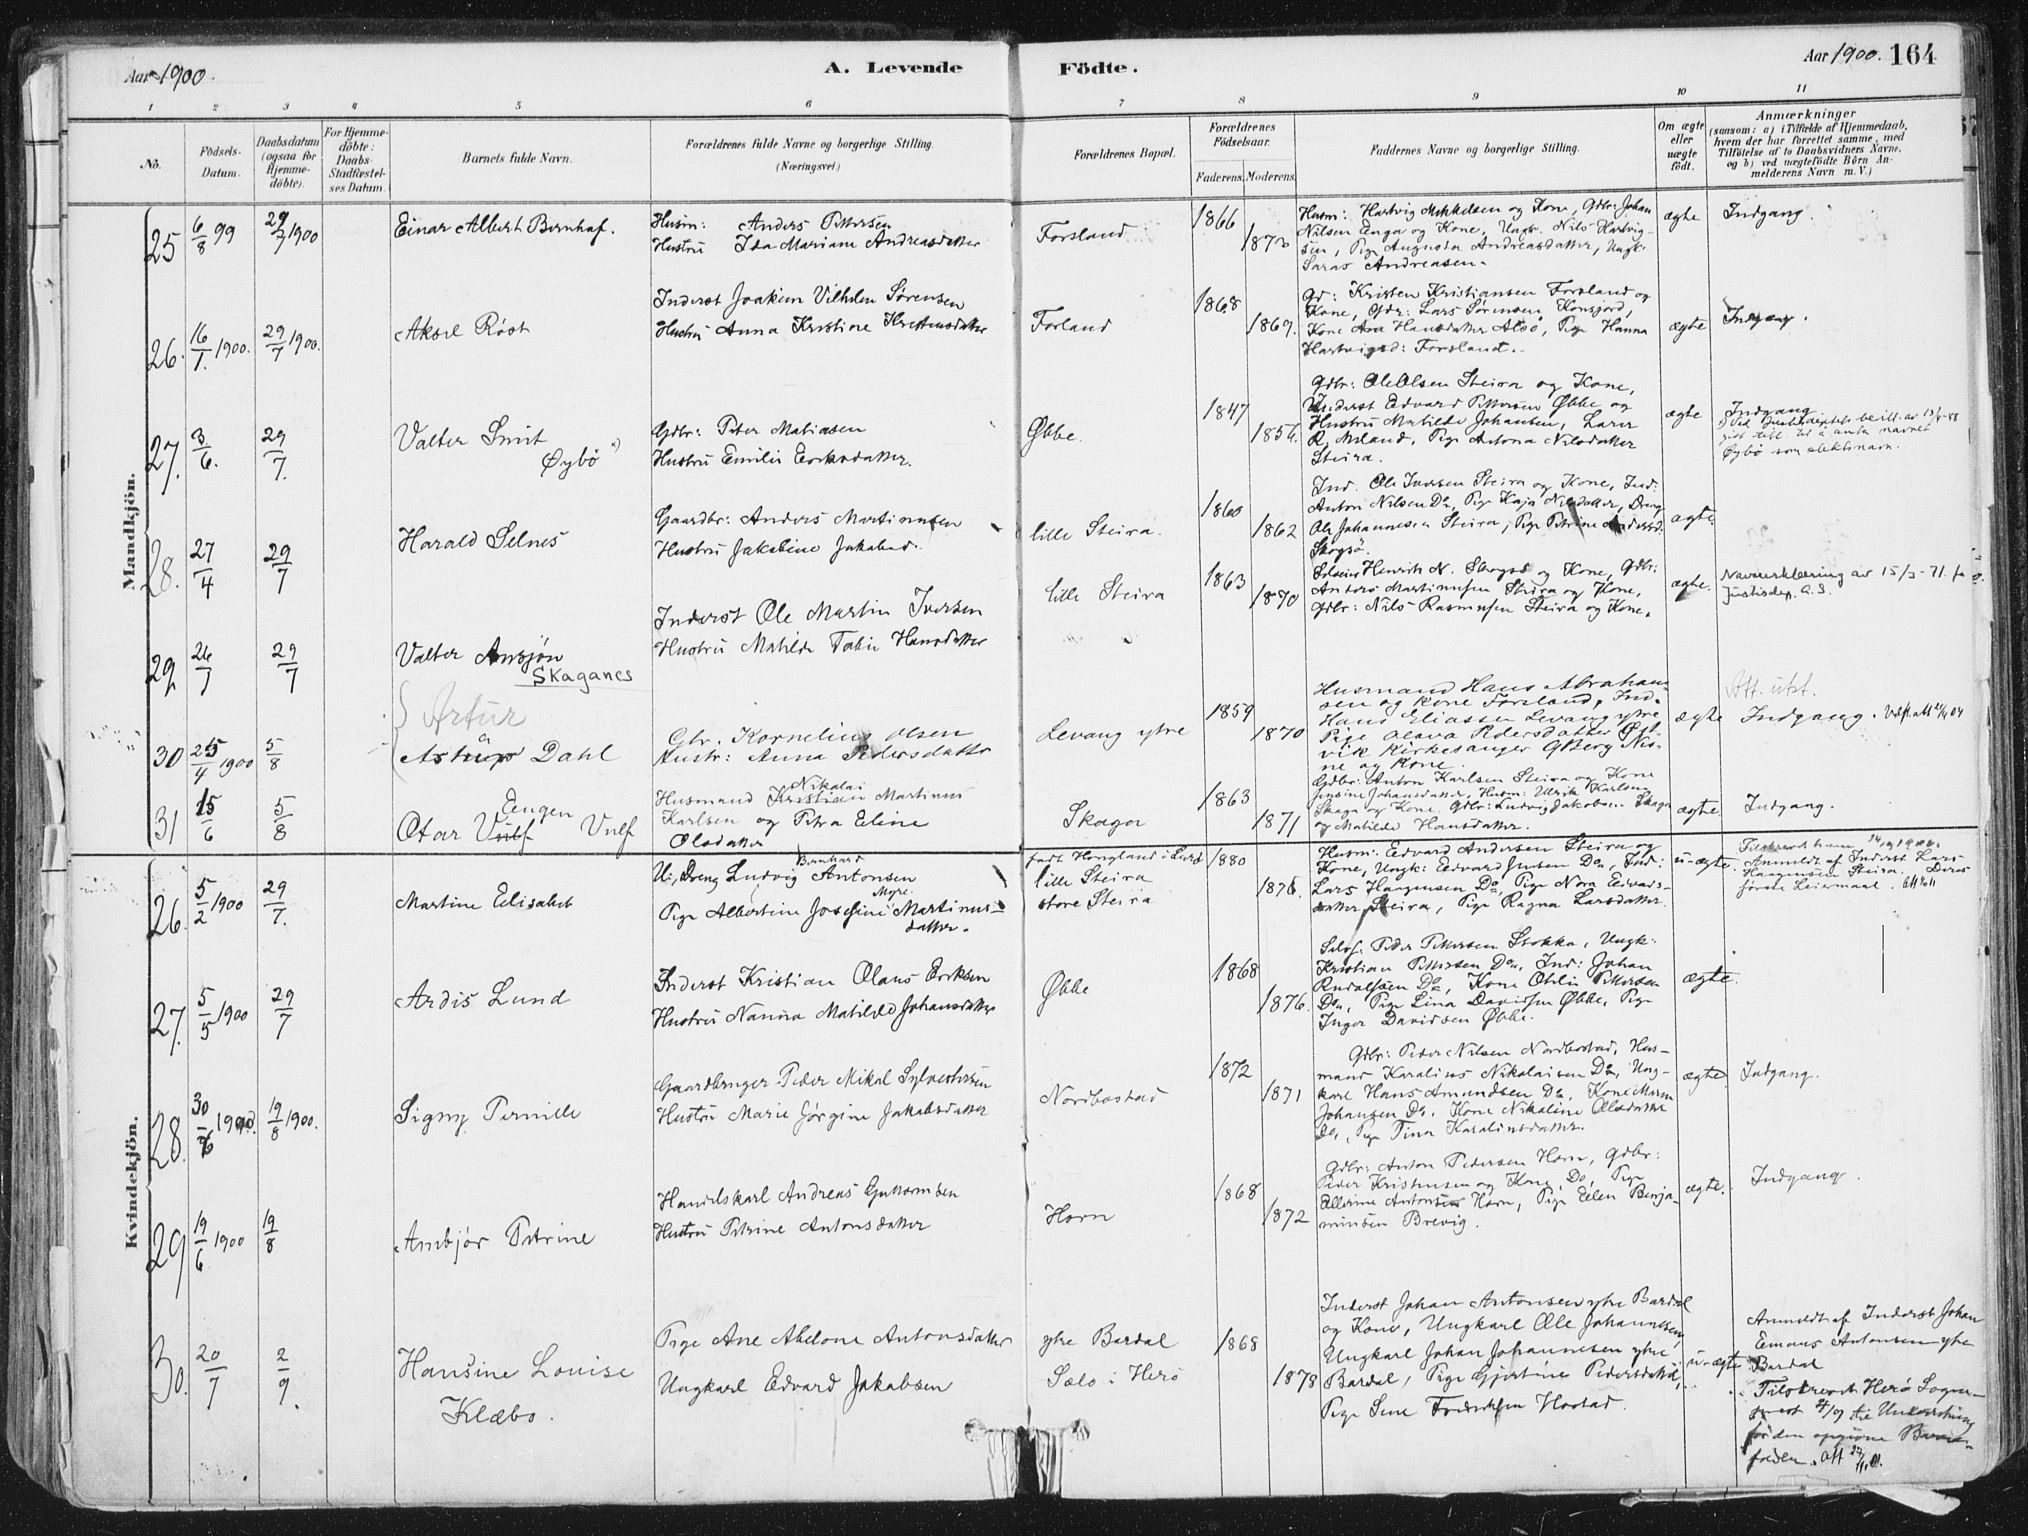 Aar 1900.
A. Levende
Födte.
Aar 1900. 164
1 2 3 4 5 6 7 8 9 10 11
No.
Födsels-
Datum.
Daabsdatum
(ogsaa for
Hjemme-
döbte).
For Hjemme-
döbte:
Daabs-
Stadfæstel-
ses Datum.
Barnets fulde Navn.
Forældrenes fulde Navne og borgerlige Stilling.
(Næringsvei.)
Forældrenes Bopæl.
Forældrenes
Födselsaar.
Faderens. Moderens.
Faddernes Navne og borgerlige Stilling.
Om ægte
eller
uægte
födt.
Anmærkninger
(saasom: a) i Tilfælde af Hjemmedaab,
hvem der har forrettet samme, med
Tilföielse af to Daabsvidners Navne,
og b) ved uægtefödte Börn An-
melderens Navn m. V.)
Mandkjön.
25 6/8 99 29/7 1900 Einar Albert Bernhof.
Husm: Anders Pettersen
Hustru Ida Mariane Andreasdatter
Forsland 1866 1873
Husm: Hartvig Mikkelsen og Kone, Gdbr: Johan
Nilsen Enga og Kone, Ungk. Nils Hartvig-
sen, Pige Augusta Andreasdatter, Ungk:
Saras Andreasen.
ægte Indgang.
26. 16/1. 1900. 29/7 1900. Aksel Röst
Inderst Joakim Vilhelm Sørensen
Hustru Anna Kristine Kristensdatter
Forland 1868 1869.
Gd: Kristen Kristiansen Forsland og
Kone, Gdbr: Lars Sörensen,
Kone Hansdatter Alsö, Pige Hanna
Hartvigsd: Forsland.
ægte Indgang.
27. 3/6. 29/7. Valter Smit
Øybö
Gdbr: Peter Matiasen
Hustru Emilie Eriksdatter.
Øbbe. 1847 1854.
Gdbr: Ole Olsen Steira og Kone,
Inderst Edvard Pettersen Øbbe og
Hustru Matilde Johansen, Lærer
R. Pige Antona Nilsdatter
Steira.
ægte Indgang
navnet
Øybö som slektsnavn.
28. 27/4 29/7 Harald Selnes
Gaardbr: Anders Martinusen
Hustru Jakobine Jakobsd.
lille Steira. 1860 1862
Ind. Ole Iversen Steira og Kone, Ind:
Anton Nilsen Do, Pige Kaja Nilsdatter, Dreng
Ole Johannesen Steira, Pige Petrine Andersd.
Skogsö.
ægte.
29 26/7 29/7 Valter Ansjön
Skaganes
Inderst Ole Martin Iversen
Hustru Matilde Tobie Hansdatter
lille Steira 1863 1870
Henrik N. og Kone, Gdbr:
Anders Martinusen Steira og Kone,
Gdbr: Nils Rasmusen Steira og Kone.
ægte. Navneerklæring av 15/3-71. fra
Justisdep.
30 25/4 1900 5/8 Artur
Astrup Dahl
Gbr. Kornelius Olsen
Hustr: Anna Pedersdatter
Levang ytre 1859 1870
Husmand Hans Abraham-
sen og Kone Forsland, Ind.
Hans Eliassen Levang ytre
Pige Olava Pedersdatter
vik Kirkesanger Gberg Nes-
ne og Kone.
ægte Att. utst.
Indgang.
31 15/6 5/8 Eugen
Otar Vulf Vulf
Nikolai
Husmand Kristian Martinus
Karlsen og Petra Eline
Olsdatter
Skaga 1863 1871
Gdbr: Anton Karlsen Steira og Kone
Jensine Johansdatter, Husm: Ulrik Karlsen
Skaga og Kone, Gdbr: Ludvig Jakobsen Skaga
og Matilde Hansdatter.
ægte. Indgang.
Kvindekjön.
26. 5/2 1900 29/7. Martine Elisabet
Bernhard
U:, Dreng Ludvig Antonsen
Myre.
Pige Albertine Josefine Martinus-
datter.
lille Steira
store Steira
1880 1876.
Husm: Edvard Andersen Steira og
Kone, Ungk: Edvard Jensen Do, Ind:
Lars Haagensen Do, Pige Nora Edvards-
datter Steira, Pige Ragna Larsdatter.
u-ægte.
Anmeldt af Inderst Lars
Haagensen Steira. Deres
første Leiermaal.
27. 5/5 1900 29/7 Ardis Lund
Inderst Kristian Olaus Eriksen
Hustru Nanna Matilde Johansdatter
Øbbe 1868 1876.
Selvf: Peder Pettersen Stokka, Ungk:
Kristian Pettersen Do, Ind: Johan
Rudolfsen Do, Kone Otilie Pettersen
Do, Pige Lina Davidsen Øbbe, Pige
Inger Davidsen Øbbe.
ægte.
28. 30/6 1900. 19/8 1900. Signy Pernille
Gaardbruger Peder Mikal Sylvestersen
Hustru Marie Jörgine Jakobsdatter
Nordbostad 1872 1871
Gdbr: Peder Nilsen Nordbostad, Hus-
mand Karalius Nikolaisen Do, Ung-
karl Hans Amundsen Do, Kone Maren
Johansen Do, Kone Nikoline Olsdatter
Do, Pige Tina Karaliusdatter.
ægte. Indgang.
29 19/6 1900 19/8 Ambjör Petrine
Handelskarl Andreas Guttormsen
Hustru Petrine Antonsdatter
Horn 1868 1872
Gdbr: Anton Pedersen Horn, Gdbr:
Peder Kristensen og Kone, Do, Pige
Ellerine Antonsen Horn, Pige Elen Benja-
minsen Brevig.
ægte. Indgang.
30. 20/7 2/9. Hansine Louise
Klæbo.
Pige Ane Abelone Antonsdatter
Ungkarl Edvard Jakobsen
ytre Bardal
Sæló i Herö
1868 1878
Inderst Johan Antonsen ytre Bardal
og Kone, Ungkarl Ole Johannesen,
Ungkarl Johan Johannesen ytre
Bardal, Pige Gjertine Pedersdatter,
Pige Sine Fredriksen Hostad.
u-ægte
Anmeldt af Inderst Johan
Emaus Antonsen ytre
Bardal
Tilskrevet Herö Sogne-
prest til Underretning
for den opgivne Barne-
faden.